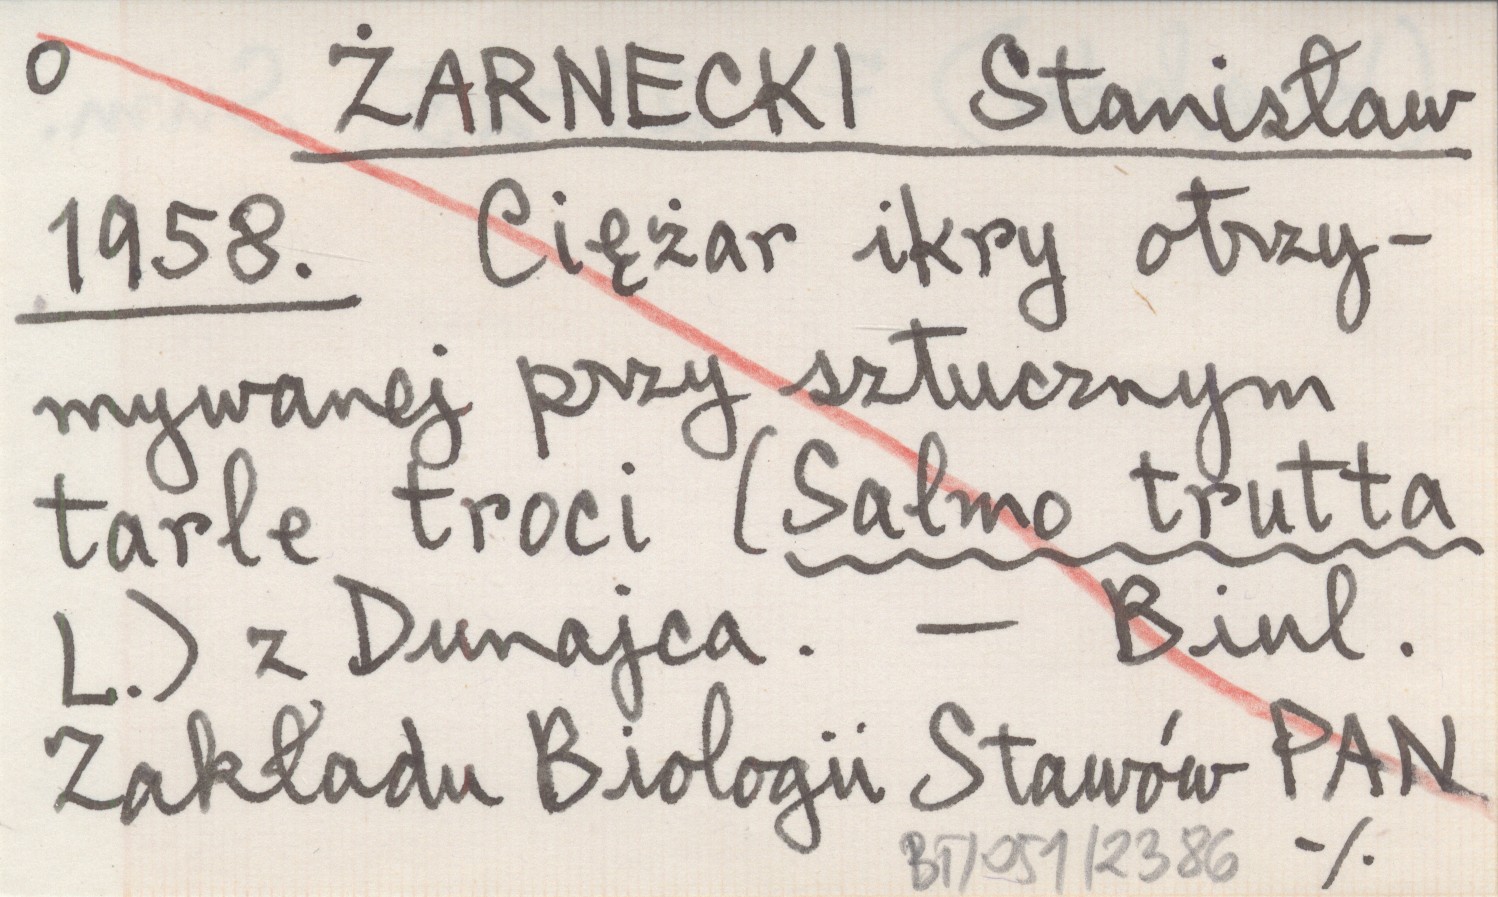 o ŻARNECKI Stanisław
1958. Ciężar ikry otrzy-
mywanej przy sztucznym
tarle troci (Salmo trutta
L.) z Dunajca. — Biul.
Zakładu Biologii Stawów PAN
BT/051/2386 -/.